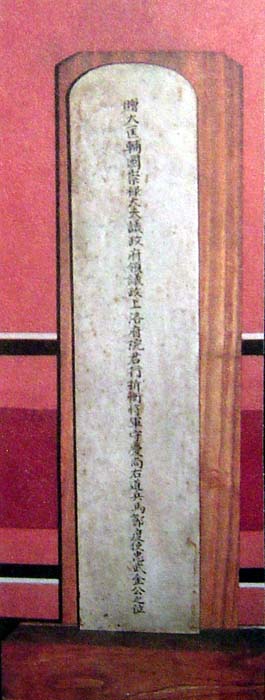 贈大匡輔國崇祿大夫議政府領議政上洛府院君行折衝將軍守慶尙右道兵馬節度使忠武金公之位